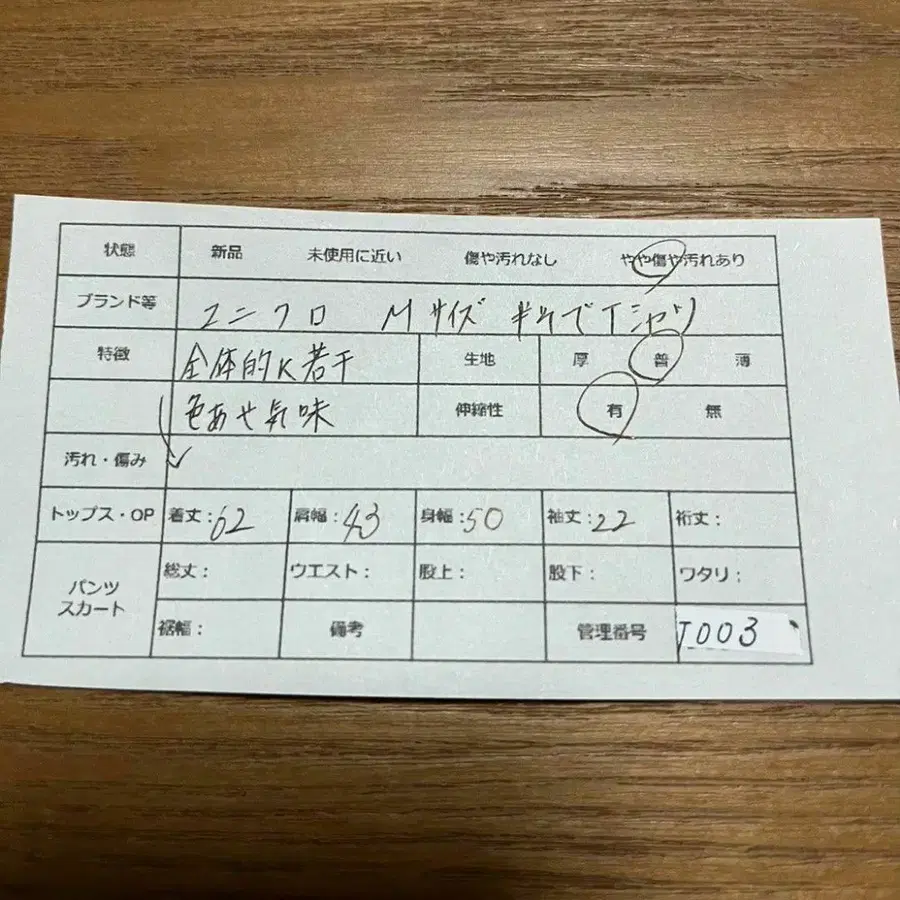 状態 新品 未使用に近い 傷や汚れなし やや傷や汚れあり
ブランド等 ユニクロ Mサイズ 半そでTシャツ
特徴 全体的に若干 生地 厚 普 薄
色あせ気味 伸縮性 有 無
汚れ・傷み
トップス・OP 着丈:62 肩幅:43 身幅:50 袖丈:22 裄丈:
パンツ スカート 総丈: ウエスト: 股上: 股下: ワタリ:
裾幅: 備考 管理番号 T003